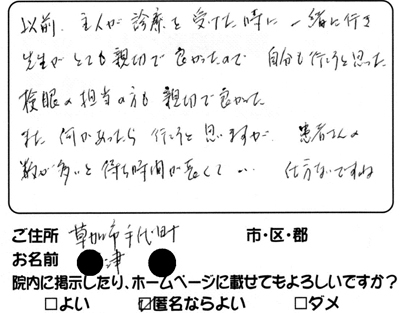 以前、主人が診療を受けた時に一緒に行き
先生がとても親切で良かったので 自分も行こうと思った
検眼の担当の方も 親切で良かった
また 何かあったら 行こうと思いますが、患者さんの
数が多いと待ち時間が長くて… 仕方ないですね
ご住所 草加市手代町 市・区・郡
お名前 津
院内に掲示したり、ホームページに載せてもよろしいですか?
□よい ☑匿名ならよい □ダメ